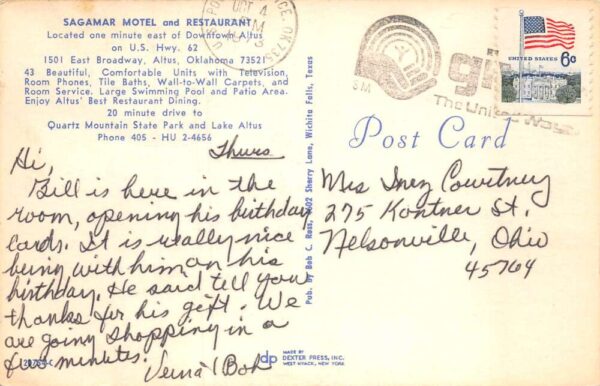 SAGAMAR MOTEL and RESTAURANT
Located one minute east of Downtown Altus
on U.S. Hwy. 62
1501 East Broadway, Altus, Oklahoma 73521
43 Beautiful, Comfortable Units with Television,
Room Phones, Tile Baths, Wall-to-Wall Carpets, and
Room Service. Large Swimming Pool and Patio Area.
Enjoy Altus' Best Restaurant Dining.
20 minute drive to
Quartz Mountain State Park and Lake Altus
Phone 405 - HU 2-4656
Thurs
Hi,
Bill is here in the
room, opening his birthday
cards. It is really nice
being with him on his
birthday. He said tell you
thanks for his gift. We
are going shopping in a
few minutes.
Verna & Bob
Pub. by Bob C. Ross, 1602 Sherry Lane, Wichita Falls, Texas
dp
MADE BY
DEXTER PRESS, INC.
WEST NYACK, NEW YORK
OCT 4
PM
The United Way
UNITED STATES 6c
Post Card
Mrs Inez Courtney
275 Kontner St.
Nelsonville, Ohio
45764